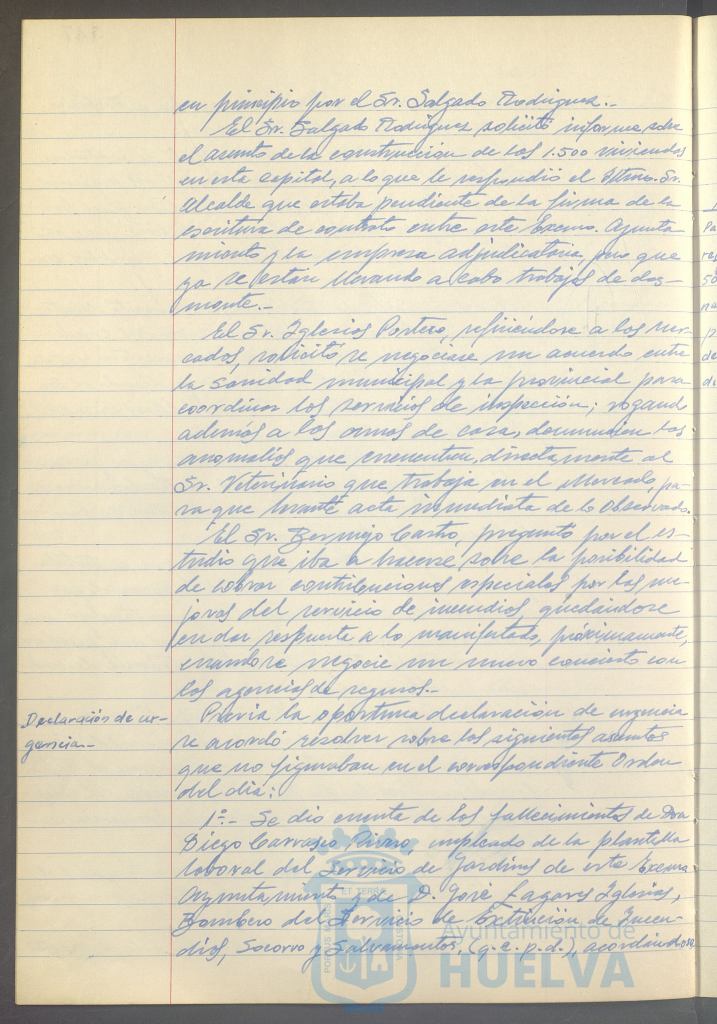 en principio por el Sr. Salgado Rodríguez.-
El Sr. Salgado Rodríguez solicitó informe sobre
el asunto de la construcción de las 1.500 viviendas
en esta capital, a lo que le respondió el Iltmo. Sr.
Alcalde que estaba pendiente de la firma de la
escritura de contrato entre este Excmo. Ayunta
miento y la empresa adjudicataria, pero que
ya se están llevando a cabo trabajos de des-
monte.-
El Sr. Iglesias Portero, refiriéndose a los mer-
cados, solicitó se negociase un acuerdo entre
la Sanidad municipal y la provincial para
coordinar los servicios de inspección; rogand
además a las amas de casa, denuncien las
anomalías que encuentren, directamente al
Sr. Veterinario que trabaja en el Mercado, pa-
ra que levante acta inmediata de lo observado.
El Sr. Bermejo Castro, preguntó por el es-
tudio que iba a hacerse sobre la posibilidad
de cobrar contribuciones especiales por las me
joras del servicio de incendios quedándose
en dar respuesta a lo manifestado, próximamente,
cuando se negocie un nuevo concierto con
las agencias de seguros.-
Declaración de ur-
gencia.-
Previa la oportuna declaración de urgencia
se acordó resolver sobre los siguientes asuntos
que no figuraban en el correspondiente Orden
del día:
1º.- Se dio cuenta de los fallecimientos de Don
Diego Carrasco, empleado de la plantilla
laboral del Servicio de Jardines de este Excmo.
Ayuntamiento y de D. José Lagares Iglesias,
Bombero del Servicio de Extinción de Incen-
dios, Socorro y Salvamentos, (q.e.p.d.), acordándose
Ayuntamiento de
HUELVA